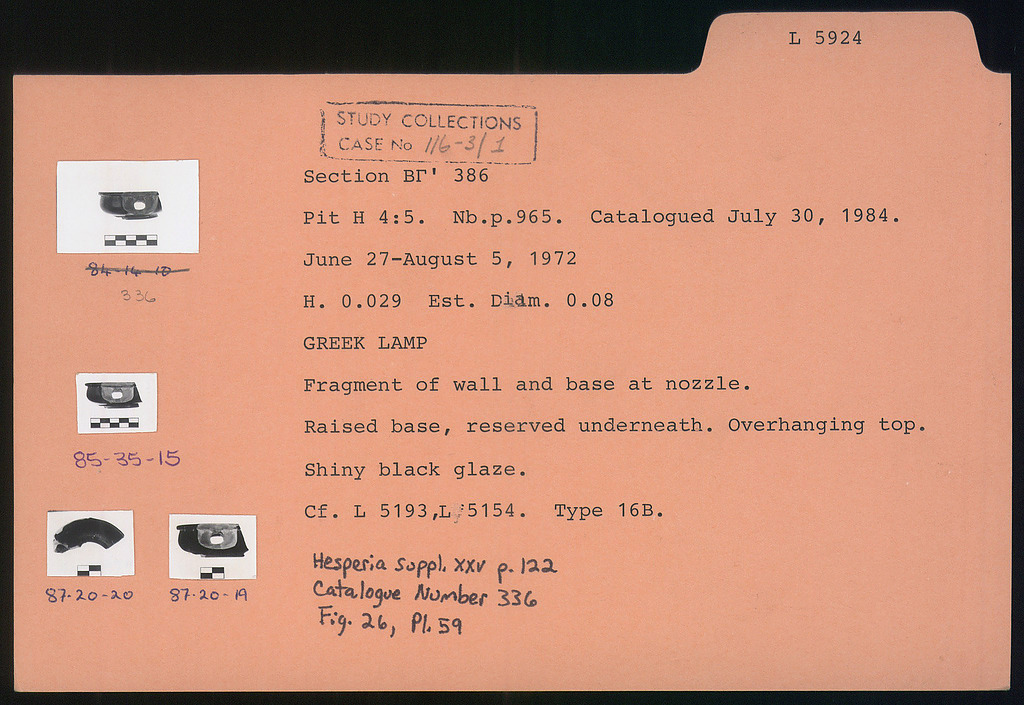 L 5924
STUDY COLLECTIONS
CASE No 116-3/1
Section ΒΓ' 386
Pit H 4:5. Nb.p.965. Catalogued July 30, 1984.
June 27-August 5, 1972
H. 0.029 Est. Diam. 0.08
GREEK LAMP
Fragment of wall and base at nozzle.
Raised base, reserved underneath. Overhanging top.
Shiny black glaze.
Cf. L 5193,L 5154. Type 16B.
Hesperia Suppl. XXV p. 122
Catalogue Number 336
Fig. 26, Pl. 59
84-14-10
336
85-35-15
87-20-20
87-20-19